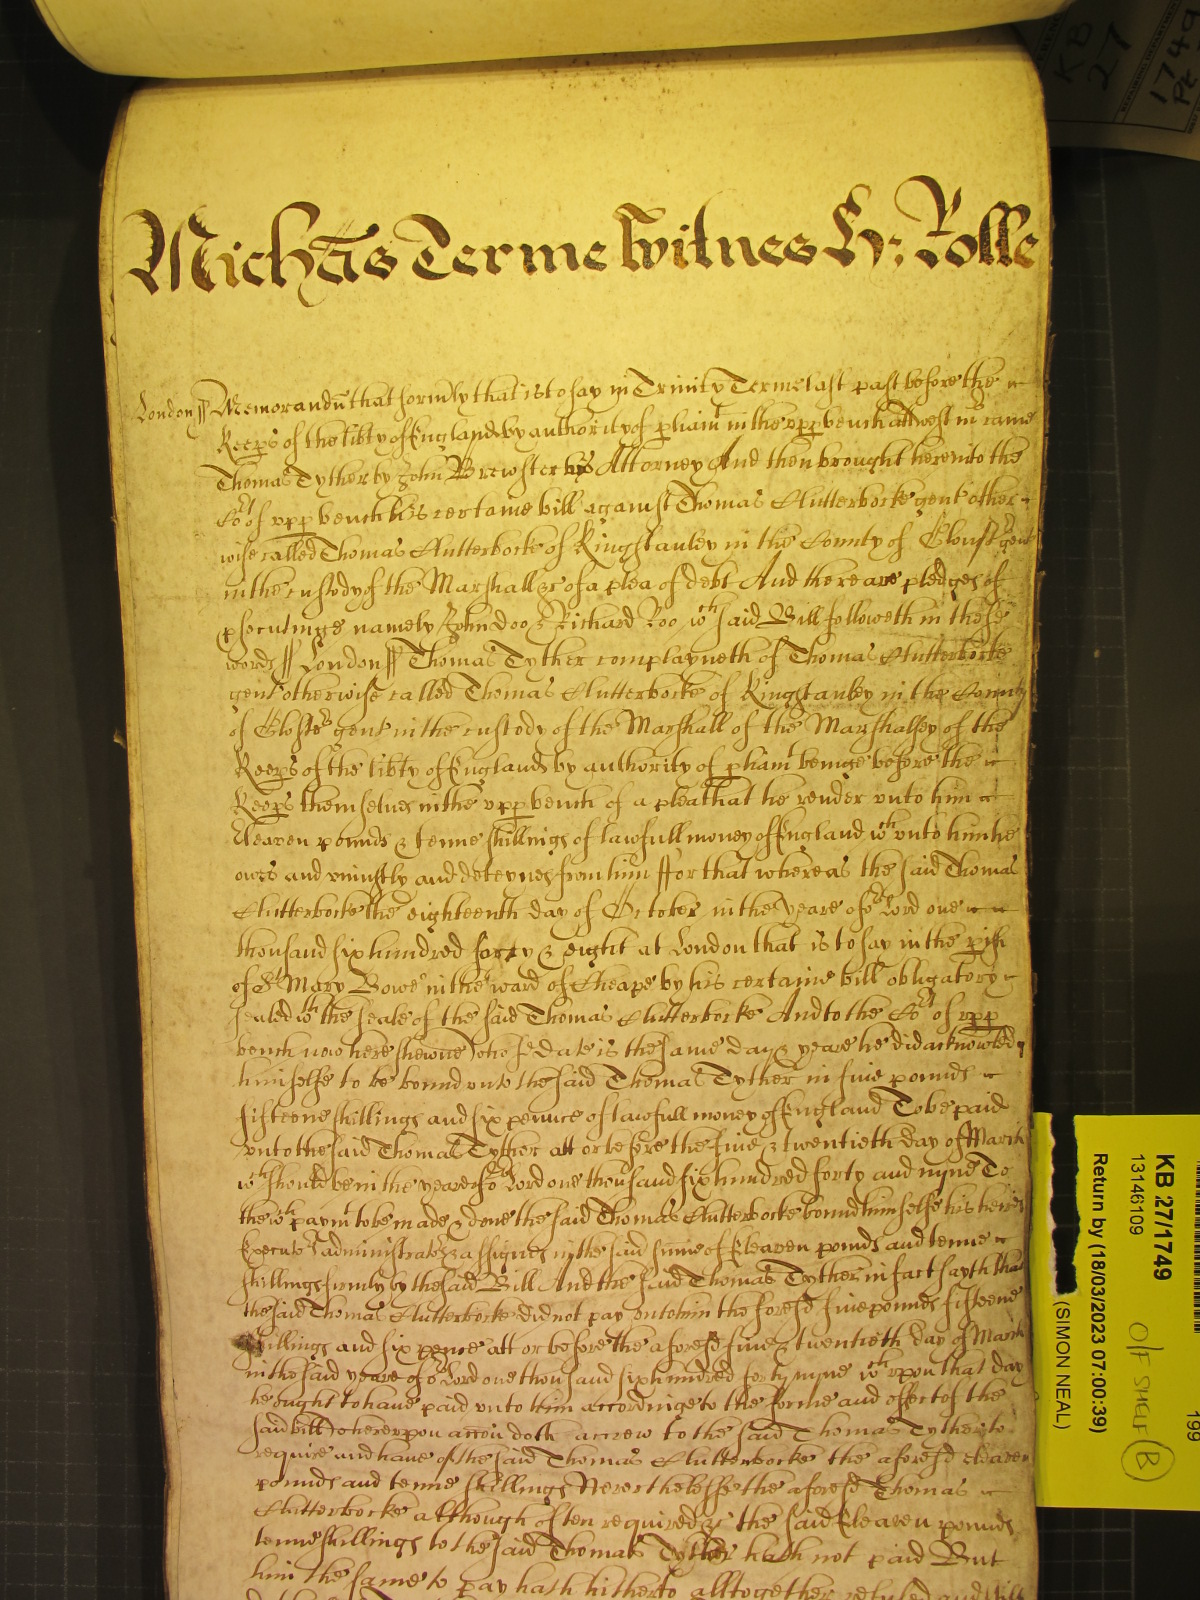 KB 27
1749
Pt
Michās Terme Witnes H: Rolle
London ss Memorandū that formly that is to say in Trinity Terme last past before the
Keeps of the libty of England by authority of pliamt in the upp bench att westmr came
Thomas Tyther by John Brewster his Attorney And then brought here into the
Cort of upp bench his certaine bill against Thomas Clutterbocke gent other
wise called Thomas Clutterbocke of Kingstanley in the County of Gloustr gent
in the custody of the Marshall &c of a plea of debt And there are pledges of
psecutinge namely John doo & Richard Roo wch said Bill followeth in these
words ss London ss Thomas Tyther complayneth of Thomas Clutterbocke
gent otherwise called Thomas Clutterbocke of Kingstanley in the County
of Glostr gent in the custody of the Marshall of the Marshalsey of the
Keeps of the libty of England by authority of pliamt beinge before the
Keeps themselves in the upp bench of a plea that he render unto him
Eleaven pounds & tenne shillings of lawfull money of England wch unto him he
owes and uniustly and deteynes from him ffor that whereas the said Thomas
Clutterbocke the eighteenth day of October in the yeare of or Lord one
thousand six hundred forty & eight at London that is to say in the pish
of St Mary Bowe in the ward of Cheape by his certaine bill obligatory
sealed wth the seale of the said Thomas Clutterbocke And to the Cort of upp
bench now here shewne whose date is the same day & yeare he did acknowledg
himselfe to be bound unto the said Thomas Tyther in five pounds
fifteene shillings and six pence of lawfull money of England To be paid
unto the said Thomas Tyther att or before the five & twentieth day of March
wch should be in the yeare of or Lord one thousand six hundred forty and nyne To
the wch paymt to be made & done the said Thomas Clutterbocke bound himselfe his heires
Executrs administratrs & assignes in the said sume of Eleaven pounds and tenne
shillings firmly by the said Bill And the said Thomas Tyther in fact sayth that
the said Thomas Clutterbocke did not pay unto him the foresd five pounds fifteene
shillings and six pence att or before the aforesd five & twentieth day of March
in the said yeare of or Lord one thousand six hundred forty nyne wch upon that day
he ought to have paid unto him accordinge to the forme and effect of the
said bill whereupon accon doth accrew to the said Thomas Tyther to
require and have of the said Thomas Clutterbocke the aforesd eleaven
pounds and tenne shillings Neverthelesse the aforesd Thomas
Clutterbocke although often required &c the said Eleaven pounds
tenne shillings to the said Thomas Tyther hath not paid But
him the same to pay hath hitherto alltogether refused and still
KB 27/1749
13146109
Return by (18/03/2023 07:00:39)
(SIMON NEAL)
O/F SHELF B
199